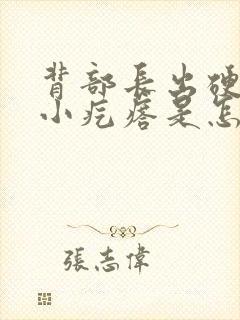 背部長出硬
小疙瘩是怎
張志偉